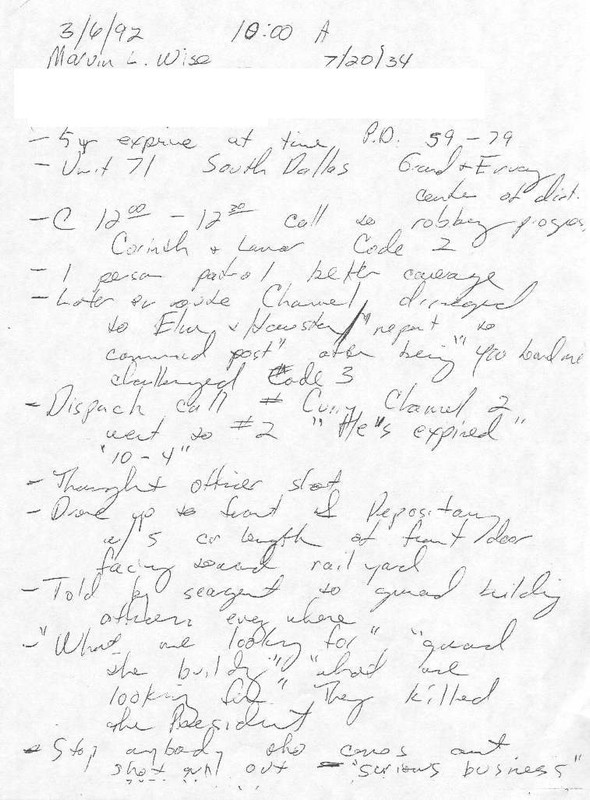 3/6/92 10:00 A
Marvin L. Wise 7/20/34
- 5 yr exprine at time P.D. 59-79
- Unit 71 South Dallas Grand & Ervay
center of dist.
- C 12 00 - 12 30 call to robbery progres.
Corinth & Lamar Code 2
- 1 person patrol better coverage
- Later en route Channel disregard
to Elm & Houston "report to
command post" after being
challenged Code 3
- Dispach call # Curry Channel 2
went to #2 "He's expired"
"10-4"
- Thought officer shot
- Drove up to front of Depository
w/ 5 car length of front door
facing toward rail yard
- Told by seargent to guard building
officers every where
- "What are looking for" "guard
the building" "what are
looking for." They killed
the President
- Stop anybody who comes out
shot gun out - "serious business"